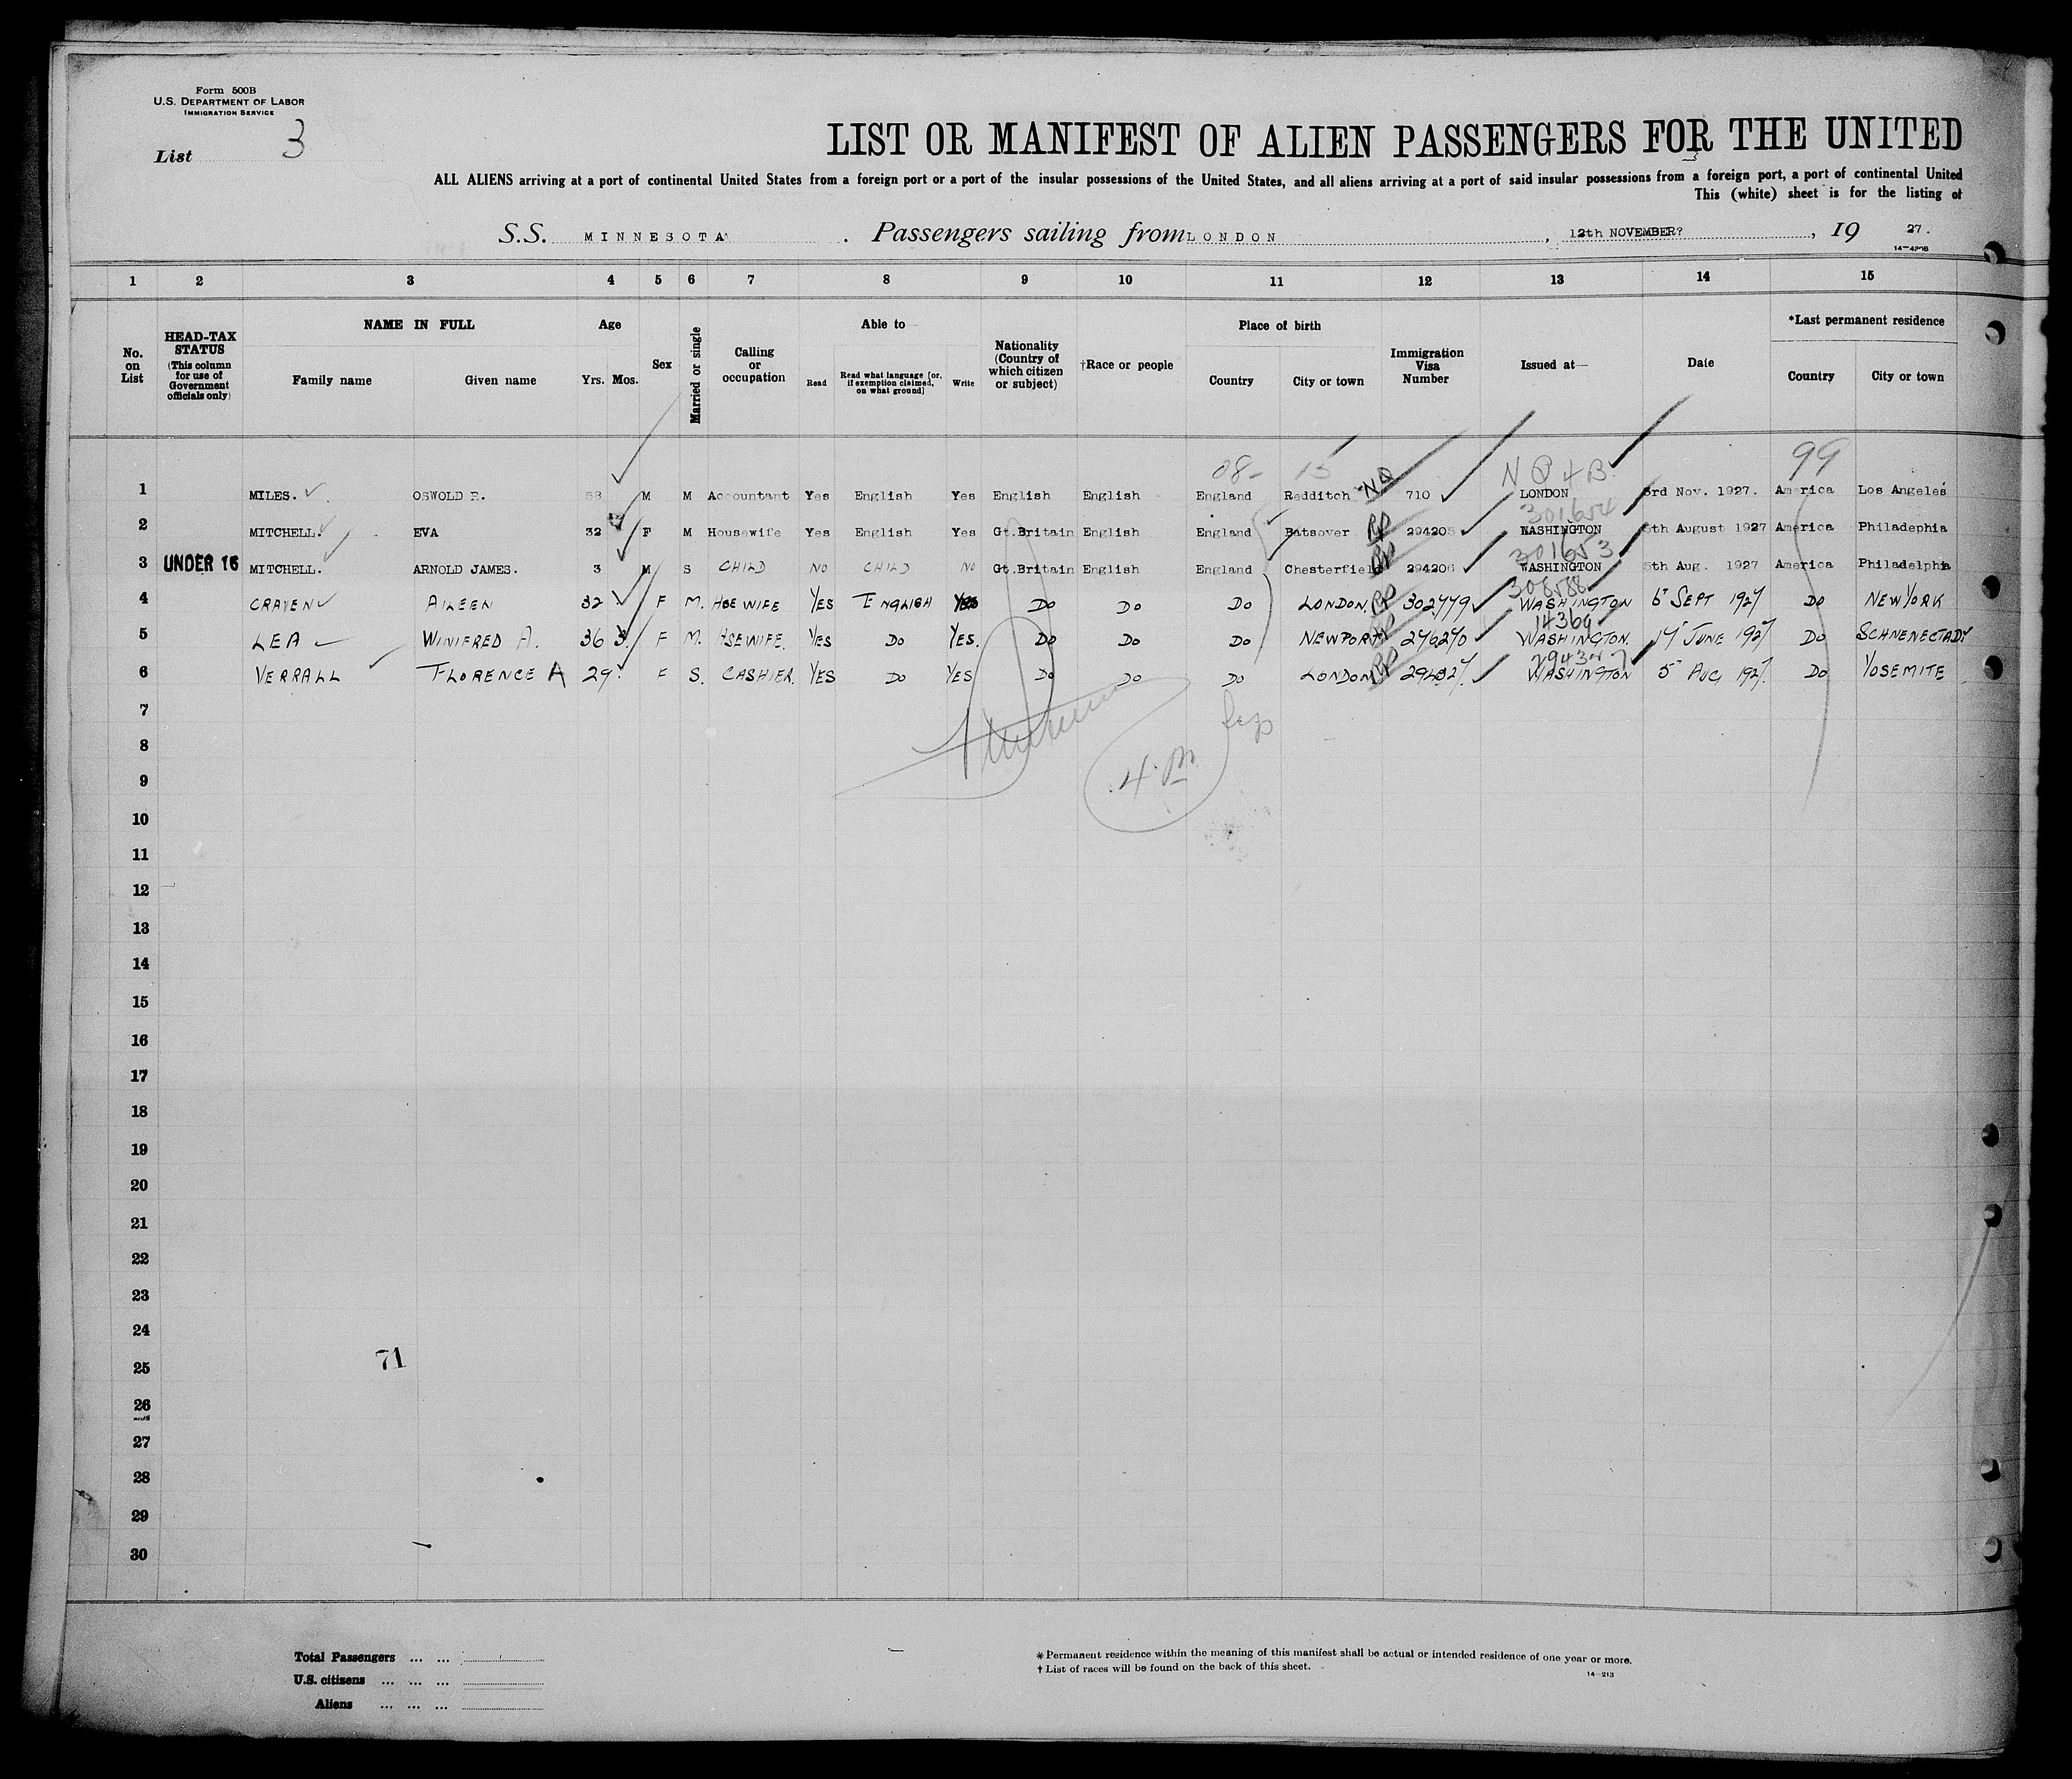 Form 500B
U.S. DEPARTMENT OF LABOR
IMMIGRATION SERVICE
List 3
LIST OR MANIFEST OF ALIEN PASSENGERS FOR THE UNITED
ALL ALIENS arriving at a port of continental United States from a foreign port or a port of the insular possessions of the United States, and all aliens arriving at a port of said insular possessions from a foreign port, a port of continental United
This (white) sheet is for the listing of
S.S. MINNESOTA. Passengers sailing from LONDON, 12th NOVEMBER?, 19 27.
1 2 3 4 5 6 7 8 9 10 11 12 13 14 15
No. on List
HEAD-TAX STATUS (This column for use of Government officials only)
NAME IN FULL
Family name
Given name
Age
Yrs. Mos.
Sex
Married or single
Calling or occupation
Able to
Read
Read what language [or, if exemption claimed, on what ground]
Write
Nationality (Country of which citizen or subject)
†Race or people
Place of birth
Country
City or town
Immigration Visa Number
Issued at—
Date
*Last permanent residence
Country
City or town
08- 15 NQ4B 99
1 MILES. OSWOLD 58 M M Accountant Yes English Yes English English England Redditch NQ 710 LONDON 3rd Nov. 1927. America Los Angeles
301654
2 MITCHELL. EVA 32 F M Housewife Yes English Yes Gt.Britain English England Batsover RP 294205 WASHINGTON 5th August 1927 America Philadephia
301653
3 UNDER 16 MITCHELL. ARNOLD JAMES. 3 M S CHILD NO CHILD NO Gt.Britain English England Chesterfield RP 294206 WASHINGTON 5th Aug. 1927 America Philadelphia
308588
4 CRAVEN AILEEN 32 F M. HSEWIFE YES ENGLISH YES DO DO DO LONDON. RP 302779 WASHINGTON 6" SEPT 1927 DO NEW YORK
5 LEA WINIFRED A. 36 3 F M. HSEWIFE. YES DO YES. DO DO DO NEWPORT RP 276270 WASHINGTON. 17" JUNE 1927 DO SCHNENECTADY
6 VERRALL FLORENCE A 29 F S. CASHIER. YES DO YES DO DO DO LONDON RP WASHINGTON 5" AUG, 1927. DO YOSEMITE
7
8
4 m
9
10
11
12
13
14
15
16
17
18
19
20
21
22
23
24
71
25
26
27
28
29
30
Total Passengers ... ...
U.S. citizens ... ... ...
Aliens ... ... ...
* Permanent residence within the meaning of this manifest shall be actual or intended residence of one year or more.
† List of races will be found on the back of this sheet.
14-213